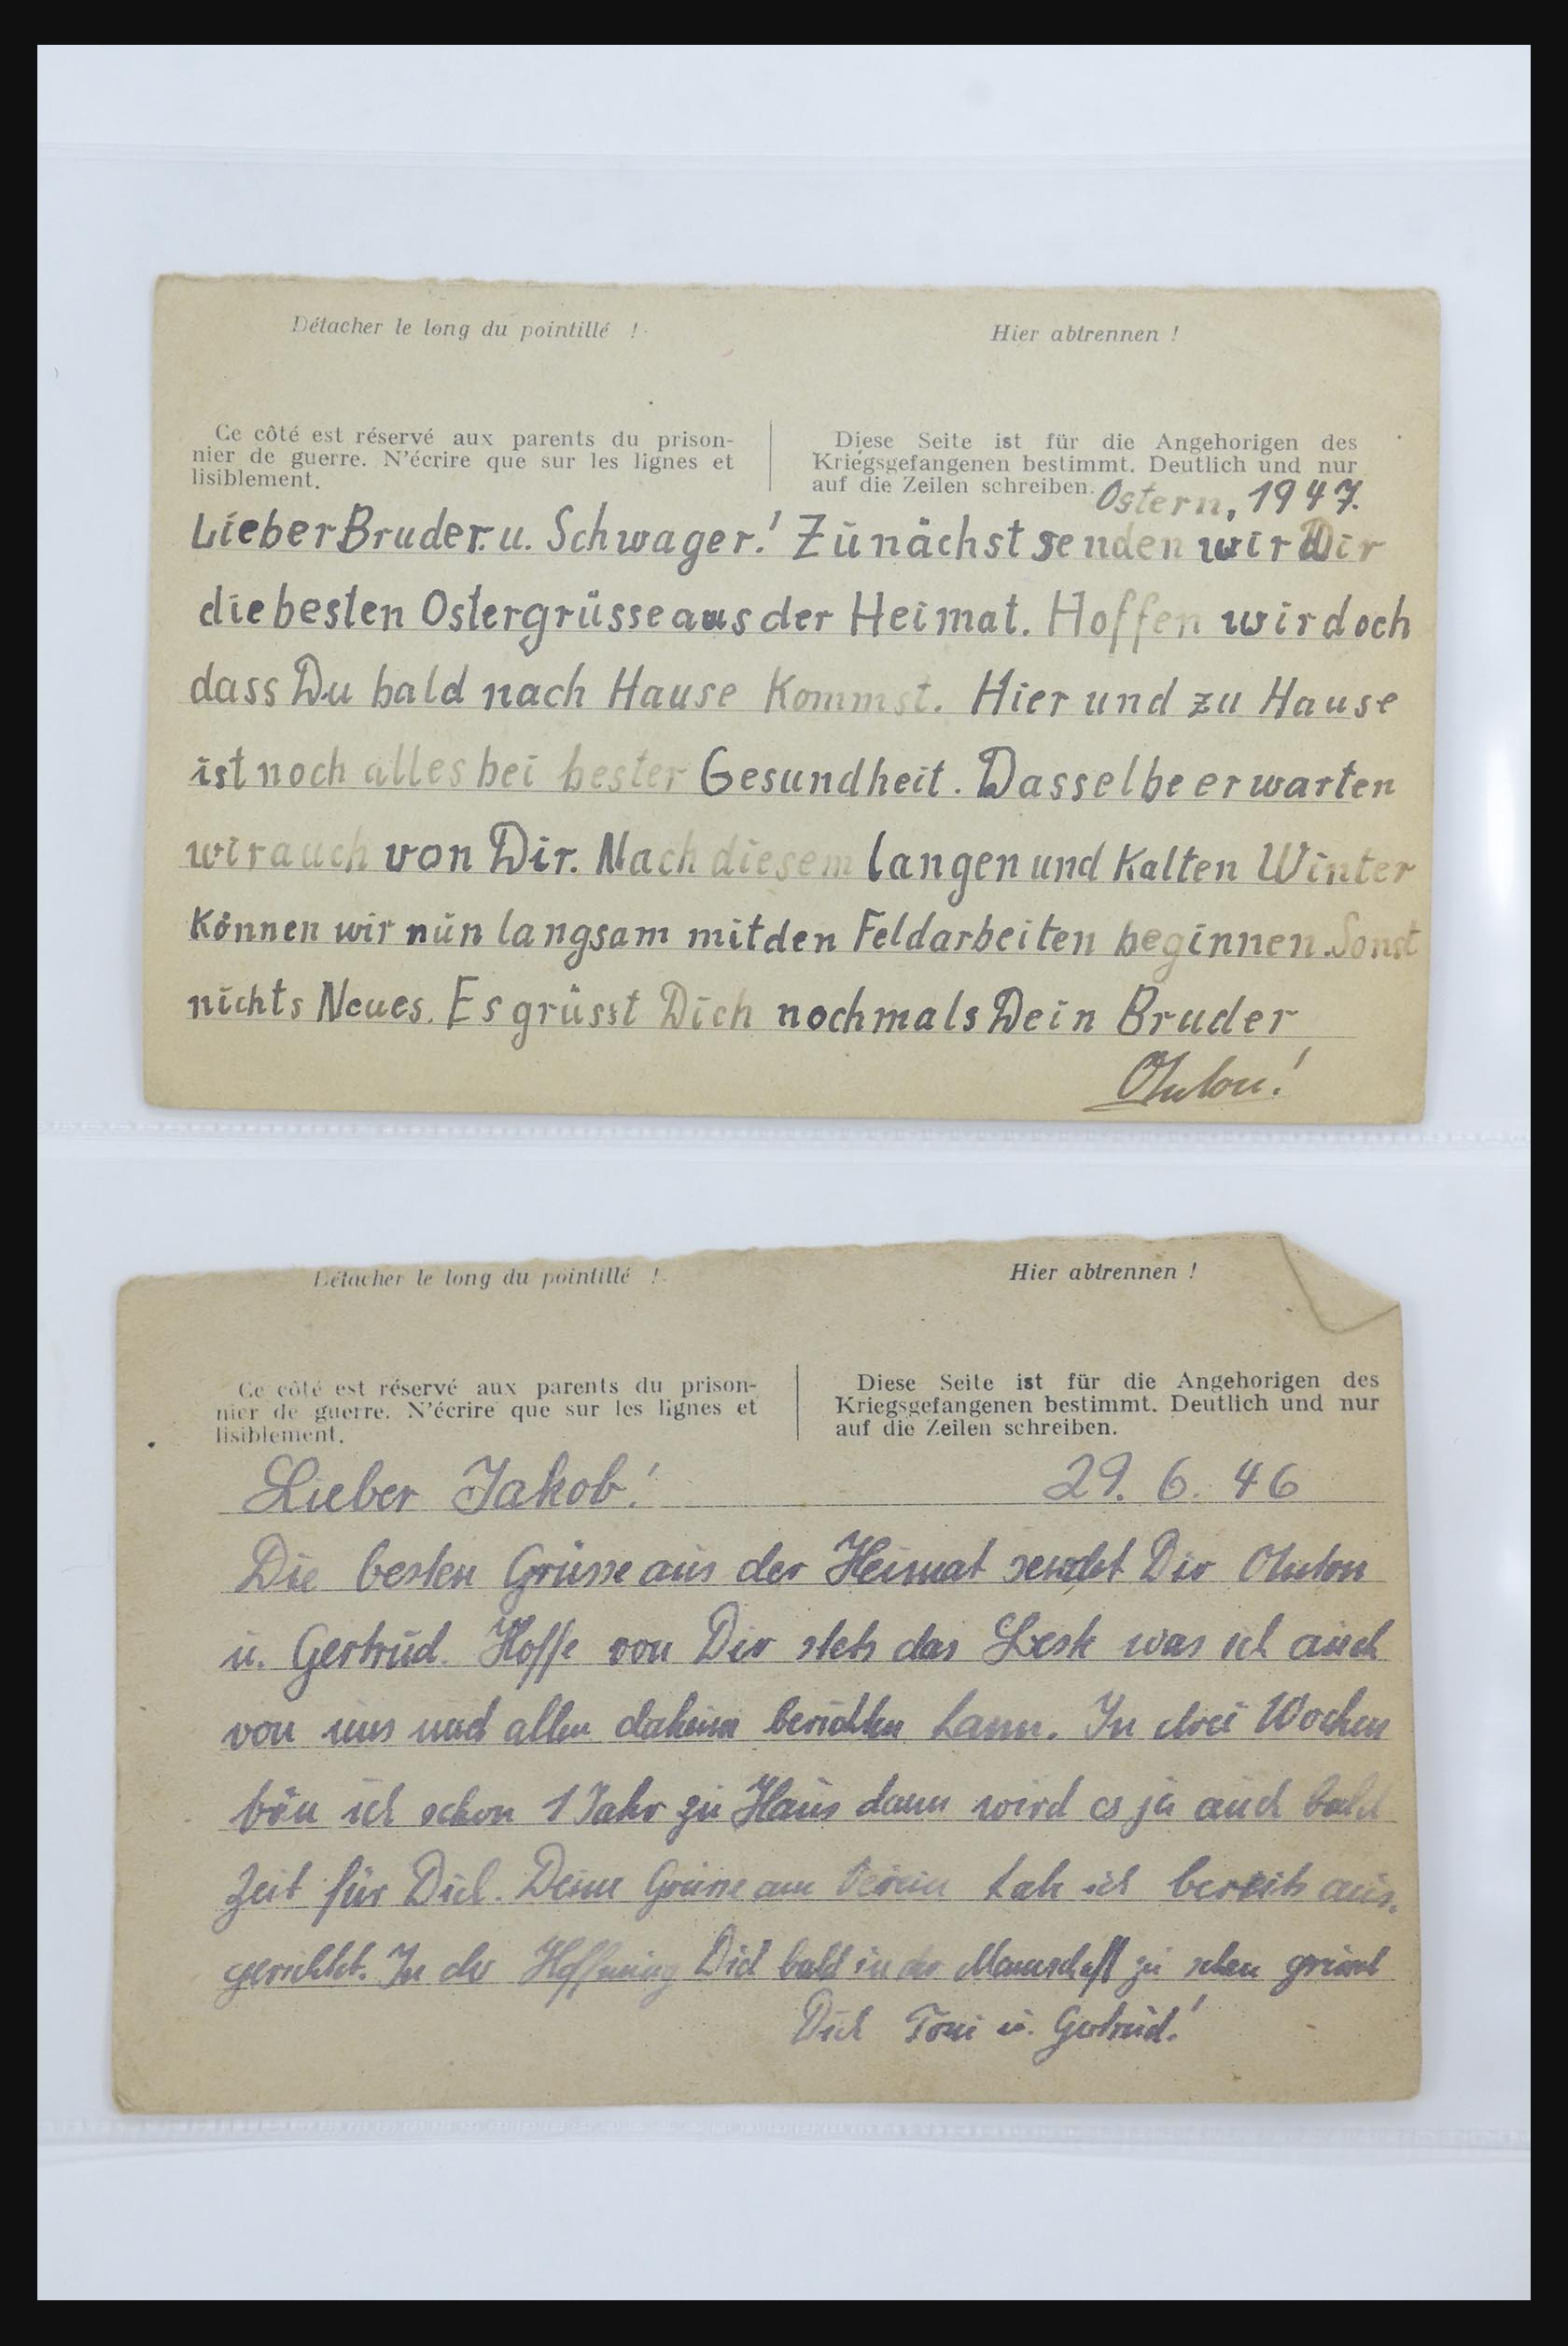 Détacher le long du pointillé !
Hier abtrennen !
Ce côté est réservé aux parents du prison-
nier de guerre. N'écrire que sur les lignes et
lisiblement.
Diese Seite ist für die Angehorigen des
Kriegsgefangenen bestimmt. Deutlich und nur
auf die Zeilen schreiben.
Ostern, 1947.
Lieber Bruder. u. Schwager.! Zünächst senden wir Dir
die besten Ostergrüsse aus der Heimat. Hoffen wir doch
dass Du bald nach Hause Kommst. Hier und zu Hause
ist noch alles bei bester Gesundheit. Dasselbe erwarten
wir auch von Dir. Nach diesem langen und Kalten Winter
Können wir nün langsam mit den Feldarbeiten beginnen. Sonst
nichts Neues. Es grüsst Dich nochmals Dein Bruder
Anton!
Détacher le long du pointillé !
Hier abtrennen !
Ce côté est réservé aux parents du prison-
nier de guerre. N'écrire que sur les lignes et
lisiblement.
Diese Seite ist für die Angehorigen des
Kriegsgefangenen bestimmt. Deutlich und nur
auf die Zeilen schreiben.
Lieber Jakob! 29. 6. 46
Die besten Grüsse aus der Heimat sendet Dir Anton
u. Gertrud. Hoffe von Dir stets das Beste was ich auch
von uns und allen daheim berichten kann. In drei Wochen
bin ich schon 1 Jahr zu Haus dann wird es ja auch bald
Zeit für Dich. Deine Grüsse am Verein hab ich bereits aus-
gerichtet. In der Hoffnung Dich bald in der Mannschaft zu sehen grüsst
Dich Toni u. Gertrud!